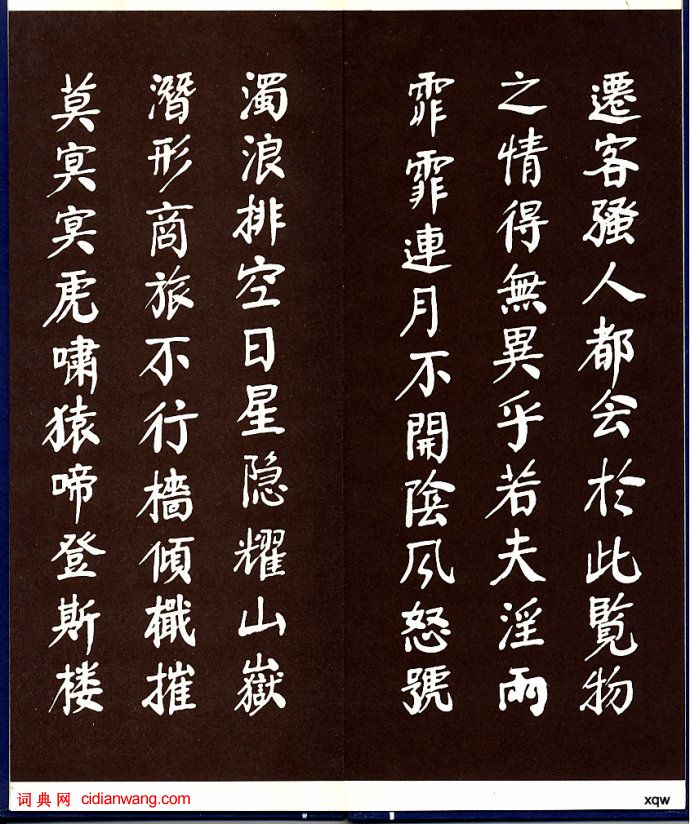 遷客騷人都会於此覧物
之情得無異乎若夫淫雨
霏霏連月不開陰风怒號
濁浪排空日星隐耀山嶽
潛形商旅不行檣傾檝摧
莫冥冥虎嘯猿啼登斯楼
词典网 cidianwang.com
xqw